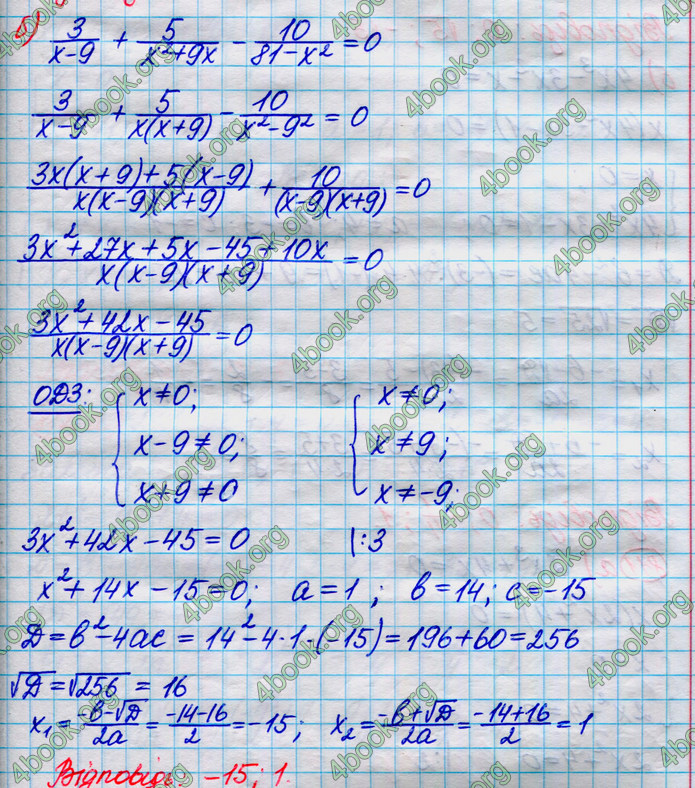 3/(x-9) + 5/(x²+9x) - 10/(81-x²) = 0
3/(x-9) + 5/(x(x+9)) - 10/(x²-9²) = 0
(3x(x+9)+5(x-9))/(x(x-9)(x+9)) + 10/((x-9)(x+9)) = 0
(3x²+27x+5x-45+10x)/(x(x-9)(x+9)) = 0
(3x²+42x-45)/(x(x-9)(x+9)) = 0
ОДЗ: { x≠0; { x≠0;
x-9≠0; x≠9;
x+9≠0 x≠-9;
3x²+42x-45=0 |:3
x²+14x-15=0; a=1; b=14; c=-15
Д=b²-4ac=14²-4·1·(-15)=196+60=256
√Д=√256=16
x₁=(-b-√Д)/2a=(-14-16)/2=-15; x₂=(-b+√Д)/2a=(-14+16)/2=1
Відповідь: -15; 1.
4book.org